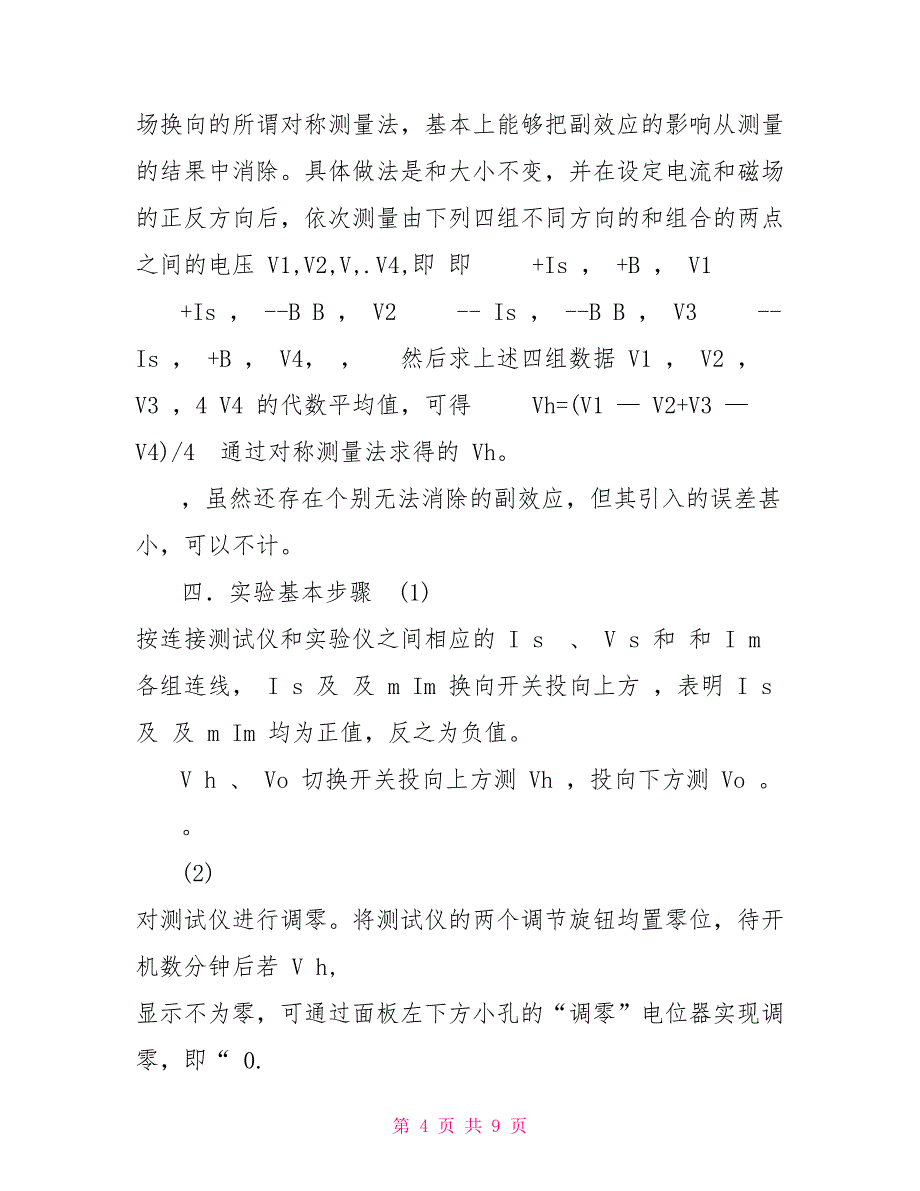 场换向的所谓对称测量法，基本上能够把副效应的影响从测量
的结果中消除。具体做法是和大小不变，并在设定电流和磁场
的正反方向后，依次测量由下列四组不同方向的和组合的两点
之间的电压 V1,V2,V,.V4,即 即 +Is ， +B ， V1
+Is ， --B B ， V2 -- Is ， --B B ， V3 --
Is ， +B ， V4， ， 然后求上述四组数据 V1 ， V2 ，
V3 ，4 V4 的代数平均值，可得 Vh=(V1 — V2+V3 —
V4)/4 通过对称测量法求得的 Vh。
，虽然还存在个别无法消除的副效应，但其引入的误差甚
小，可以不计。
四．实验基本步骤 (1)
按连接测试仪和实验仪之间相应的 I s 、 V s 和 和 I m
各组连线， I s 及 及 m Im 换向开关投向上方 ，表明 I s
及 及 m Im 均为正值，反之为负值。
V h 、 Vo 切换开关投向上方测 Vh ，投向下方测 Vo 。
。
(2)
对测试仪进行调零。将测试仪的两个调节旋钮均置零位，待开
机数分钟后若 V h,
显示不为零，可通过面板左下方小孔的“调零”电位器实现调
零，即“ 0.
第 4 页 共 9 页